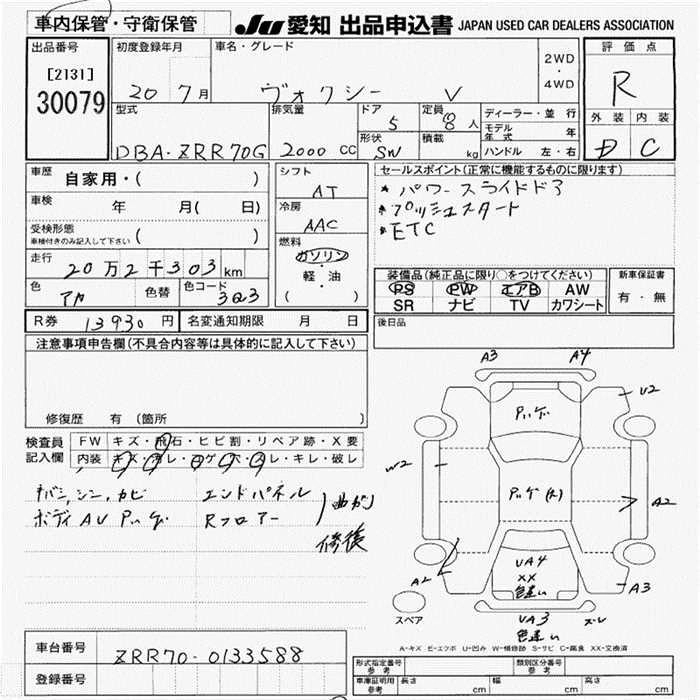 車内保管・守衛保管
JU 愛知 出品申込書 JAPAN USED CAR DEALERS ASSOCIATION
出品番号
[2131]
30079
初度登録年月
20 7月
車名・グレード
ヴォクシー V
2WD
・
4WD
評価点
R
外装 内装
C
型式
DBA-ZRR70G
排気量
2000 cc
ドア
5
定員
8人
形状
SW
積載
kg
ディーラー・並行
モデル年式 年
ハンドル 左・右
車歴 自家用・( )
車検 年 月( 日)
受検形態
車検付きのみ記入して下さい ( )
走行 20万2千303km
色 アカ 色替 色コード 3Q3
シフト
AT
冷房
AAC
燃料
ガソリン
・
軽・油
( )
セールスポイント(正常に機能するものに限ります)
* パワースライドドア
* プッシュスタート
* ETC
装備品(純正品に限り○をつけてください)
PS PW エアB AW
SR ナビ TV カワシート
新車保証書
有・無
R券 13930円 名変通知期限 月 日
後日品
注意事項申告欄(不具合内容等は具体的に記入して下さい)
修復歴 有 (箇所 )
検査員記入欄
FW キズ・飛石・ヒビ割・リペア跡・X要
内装 キズ・ヨゴレ・コゲ・穴・スレ・キレ・破レ
エンドパネル
ボディAU
Rフロアー
曲がり
修復
A3 A4
U2
W2
A2
A2
A3
UA4
XX
色違い
UA3
色違い
スレ
スペア
A-キズ E-エクボ U-凹み W-補修跡 S-サビ C-腐食 XX-交換済
車台番号 ZRR70-0133588
登録番号
形式指定番号 参考
類別区分番号 参考
車庫証明用 参考 長さ cm 幅 cm 高さ cm